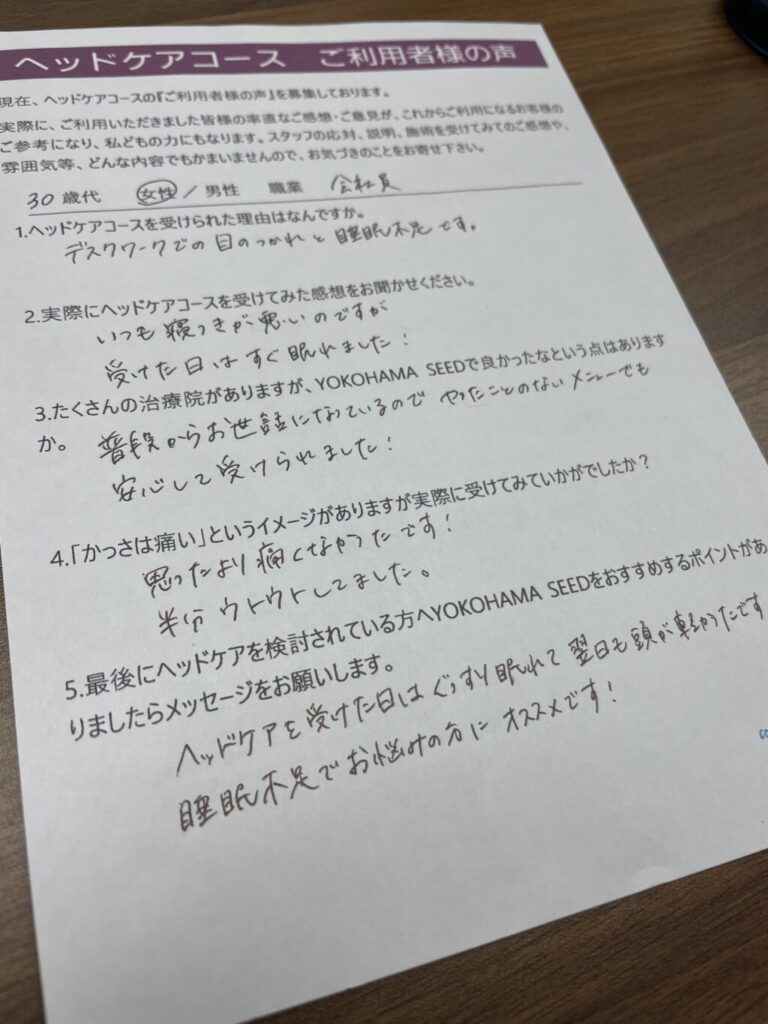 ヘッドケアコース ご利用者様の声
現在、ヘッドケアコースの『ご利用者様の声』を募集しております。
実際に、ご利用いただきました皆様の率直なご感想・ご意見が、これからご利用になるお客様の
ご参考になり、私どもの力にもなります。スタッフの応対、説明、施術を受けてみてのご感想や、
雰囲気等、どんな内容でもかまいませんので、お気づきのことをお寄せ下さい。
30歳代 女性 / 男性 職業 会社員
1.ヘッドケアコースを受けられた理由はなんですか。
デスクワークでの目のつかれと睡眠不足です。
2.実際にヘッドケアコースを受けてみた感想をお聞かせください。
いつも寝つきが悪いのですが
受けた日はすぐ眠れました!
3.たくさんの治療院がありますが、YOKOHAMA SEEDで良かったなという点はあります
か。 普段からお世話になっているのでやったことのないメニューでも
安心して受けられました!
4.「かっさは痛い」というイメージがありますが実際に受けてみていかがでしたか?
思ったより痛くなかったです!
半分ウトウトしてました。
5.最後にヘッドケアを検討されている方へYOKOHAMA SEEDをおすすめするポイントがあ
りましたらメッセージをお願いします。
ヘッドケアを受けた日はぐっすり眠れて翌日も頭が軽かったです
睡眠不足でお悩みの方にオススメです!